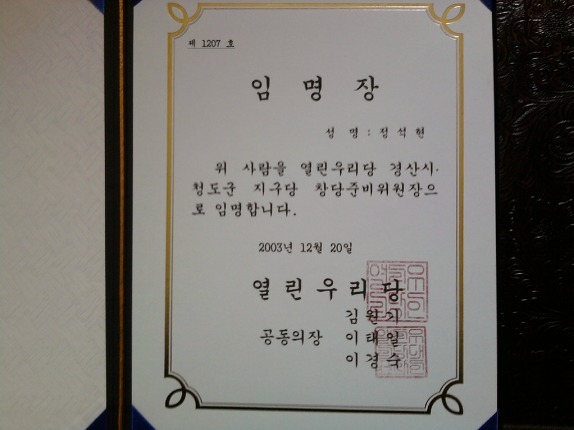 제 1207 호
임 명 장
성 명 : 정 석 현
위 사람을 열린우리당 경산시·
청도군 지구당 창당준비위원장으
로 임명합니다.
2003년 12월 20일
열린우리당
김원기
공동의장 이태일
이경숙